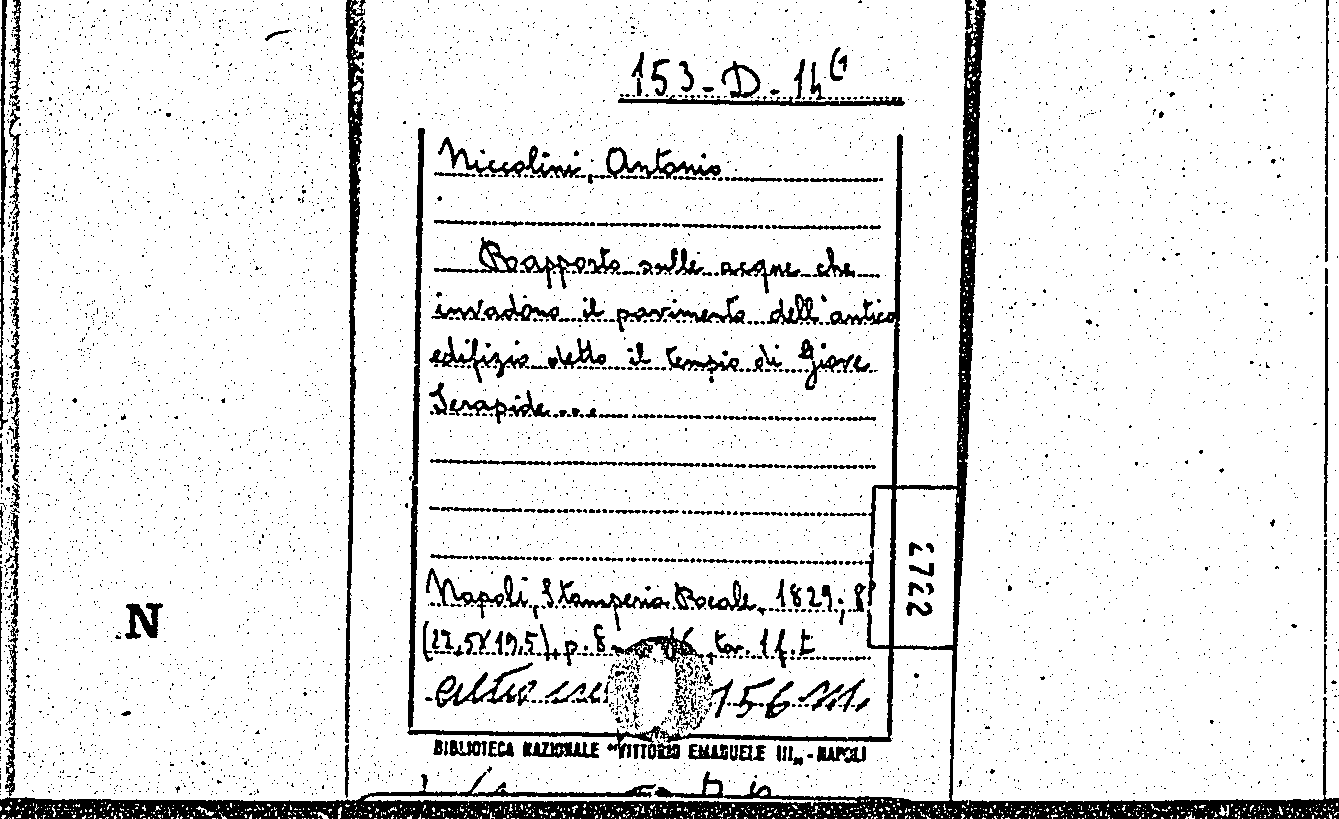 153-D-14
Niccolini, Antonio
Rapporto sulle acque che
invadono il pavimento dell'antico
edifizio detto il tempio di Giove
Serapide...
2722
Napoli, Stamperia Reale, 1829; 8°
N
(27,5X19,5), p. 8 tav. 1 f.t
altro 156
BIBLIOTECA NAZIONALE "VITTORIO EMANUELE III" - NAPOLI